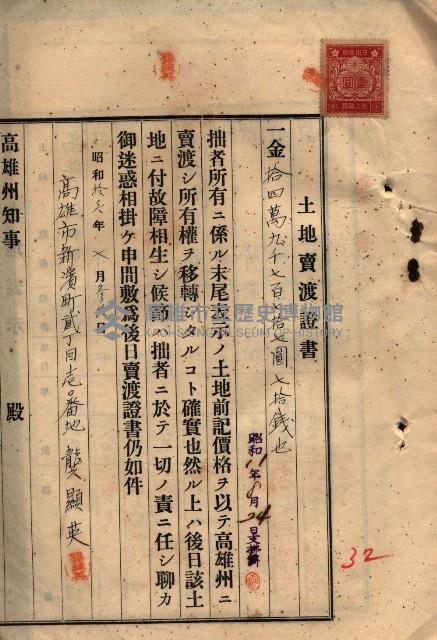 土地賣渡證書
一金拾四萬九千七百拾七圓七拾錢也
拙者所有ニ係ル末尾表示ノ土地前記價格ヲ以テ高雄州ニ
賣渡シ所有權ヲ移轉シタルコト確實也然ル上ハ後日該土
地ニ付故障相生シ候節ハ拙者ニ於テ一切ノ責ニ任シ聊カ
御迷惑相掛ケ申間敷為後日賣渡證書仍如件
昭和拾 年 月 日
高雄市新濱町貳丁目壱〇番地 龔顯英
高雄州知事 殿
昭和11年 月24
32
高雄市立歷史博物館
KAOHSIUNG MUSEUM OF HISTORY